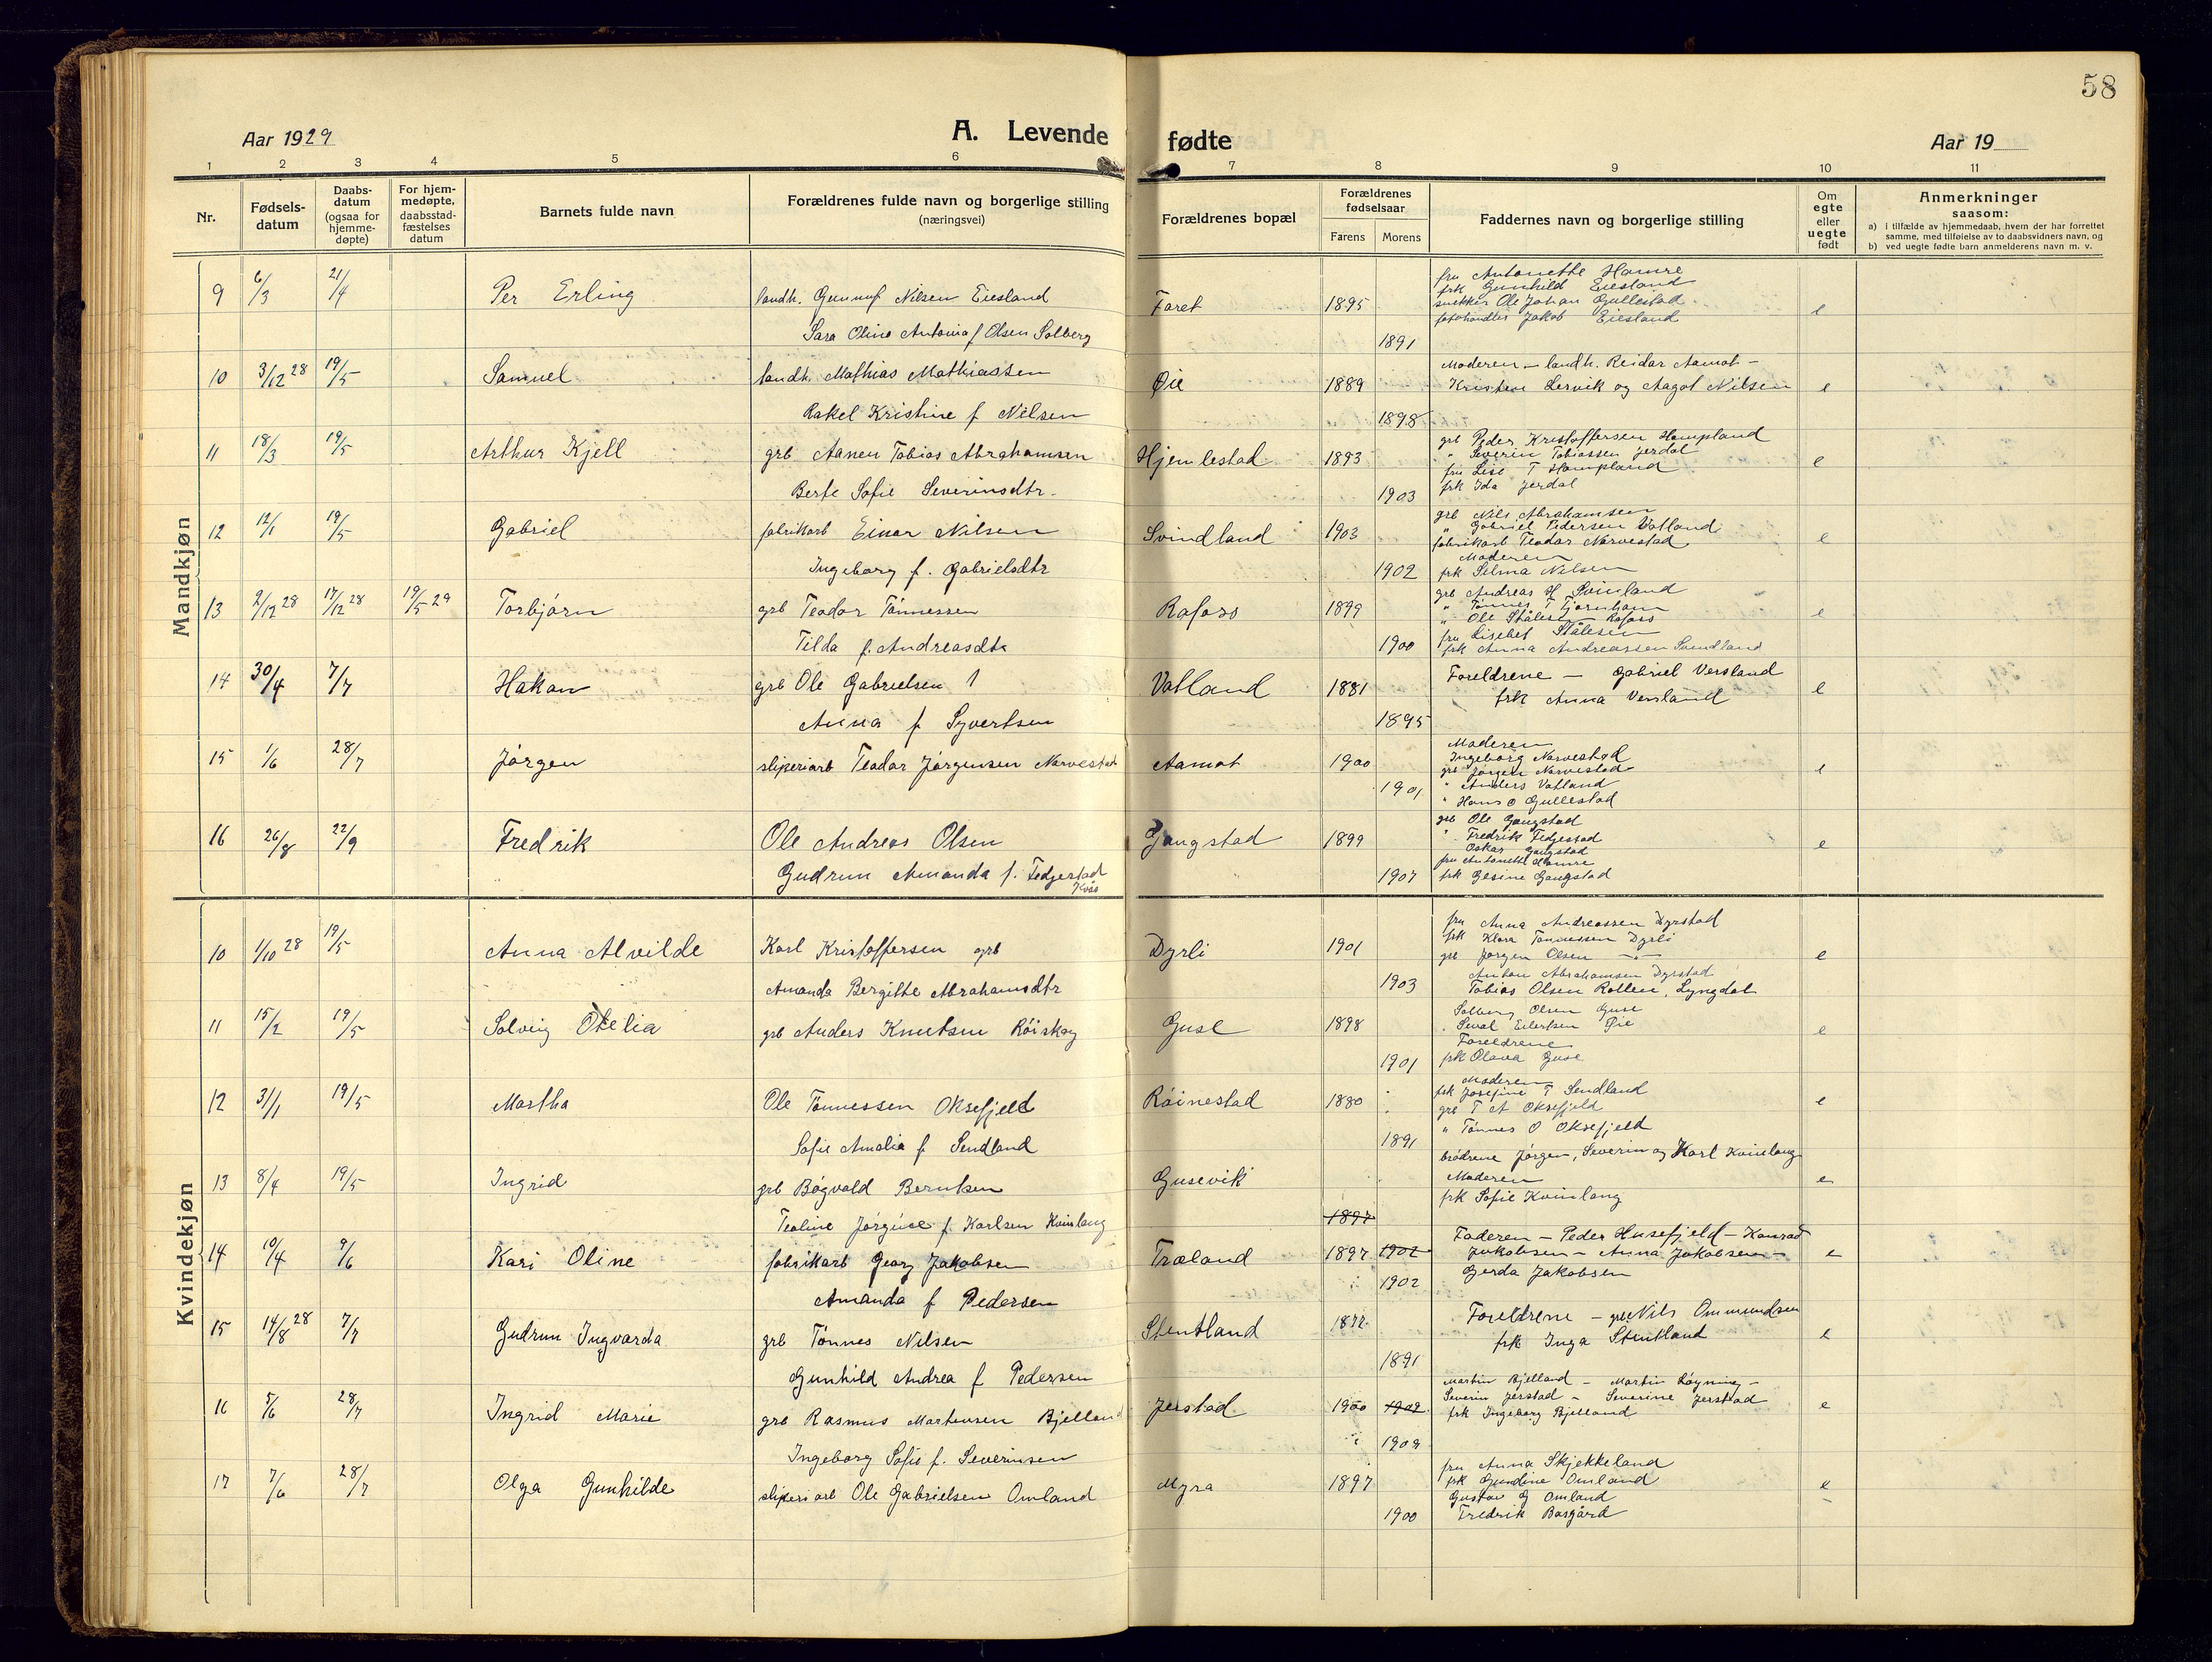 58
Aar 1929
A. Levende fødte
Aar 19
1 2 3 4 5 6 7 8 9 10 11
Nr.
Fødsels-
datum
Daabs-
datum
(ogsaa for
hjemme-
døpte)
For hjem-
medøpte,
daabsstad-
fæstelses
datum
Barnets fulde navn
Forældrenes fulde navn og borgerlige stilling
(næringsvei)
Forældrenes bopæl
Forældrenes
fødselsaar
Farens Morens
Faddernes navn og borgerlige stilling
Om
egte
eller
uegte
født
Anmerkninger
saasom:
a) i tilfælde av hjemmedaab, hvem der har forrettet
samme, med tilføielse av to daabsvidners navn, og
b) ved uegte fødte barn anmelderens navn m. v.
Mandkjøn
9 6/3 21/4 Per Erling
landh. Gunnuf Nilsen Eiesland
Sara Oline Antonia f Olsen Solberg
Faret 1895
1891
fru Antonette Homre
frk Gunhild Eiesland
snekker Ole Johan Gullestad
Jakob Eiesland
e
10 3/12 28 19/5 Samuel
landh. Mathias Mathiassen
Rakel Kristine f Nilsen
Øie 1889
1898
Moderen – landh. Reidar Aamot –
Kristine Lervik og Aagot Nilsen
e
11 18/3 19/5 Arthur Kjell
grb Aanen Tobias Abrahamsen
Berte Sofie Severinsdtr.
Hjemlestad 1893
1903
grb Peder Kristoffersen Hompland
" Severin Tobiassen Jerdal
fru Lise T Hompland
frk Ida Jerdal
e
12 12/1 19/5 Gabriel
fabrikarb Einar Nilsen
Ingeborg f. Gabrielsdtr
Svindland 1903
1902
grb Nils Abrahamsen
" Gabriel Pedersen Vatland
fabrikarb Teodor Narvestad
Moderen
frk Selma Nilsen
e
13 2/12 28 17/12 28 19/5 29 Torbjørn
grb Teodor Tønnessen
Tilda f. Andreasdtr
Rafoss 1899
1900
grb Andreas H Svinland
" Tønnes T Tjørnhom
" Ole Stålesen Rafoss
fru Lisebet Stålesen
frk Anna Andreassen Svindland
e
14 30/4 7/7 Håkon
grb Ole Gabrielsen
Anna f Syvertsen
Vatland 1881
1895
Foreldrene – Gabriel Versland
frk Anna Versland
e
15 1/6 28/7 Jørgen
sliperiarb Teodor Jørgensen Narvestad
Aamot 1900
1901
Moderen
Ingeborg Narvestad
grb Jørgen Narvestad
" Anders Vatland
" Hans O Gullestad
e
16 26/8 22/9 Fredrik
Ole Andreas Olsen
Gudrun Amanda f. Tedjestad
Kvås
Gangstad 1899
1907
grb Ole Gangstad
" Fredrik Tedjestad
Oskar Gangstad
fru Antonette Homre
frk Gesine Gangstad
e
Kvindekjøn
10 1/10 28 19/5 Anna Alvilde
Karl Kristoffersen grb
Amanda Bergitte Abrahamsdtr
Dyrli 1901
1903
fru Anna Andreassen Dyrstad
frk Klara Tønnessen Dyrli
grb Jørgen Olsen –"–
Anton Abrahamsen Dyrstad
Tobias Olsen Rollen, Lyngdal
e
11 15/2 19/5 Solveig Otelia
grb Anders Knutsen Röiskog
Guse 1898
1901
Solberg Olsen Guse
Seval Eilertsen Øie
Foreldrene
frk Olava Guse
e
12 3/1 19/5 Martha
Ole Tønnessen Oksefjeld
Sofie Amalia f Sendland
Röinestad 1880
1891
Moderen
frk Josefine T Sendland
grb T A Oksefjeld
" Tønnes O Oksefjeld
e
13 8/4 19/5 Ingrid
grb Bögvald Berntsen
Teoline Jørgine f. Karlsen Kvinlaug
Gusevik
1897
brødrene Jørgen, Severin og Karl Kvinlaug
Moderen
frk Sofie Kvinlaug
e
14 10/4 9/6 Kari Oline
fabrikarb Georg Jakobsen
Amanda f Pedersen
Træland 1897 1902
1902
Faderen – Peder Husefjeld – Konrad
Jakobsen – Anna Jakobsen –
Gerda Jakobsen
e
15 14/8 28 7/7 Gudrun Ingvarda
grb Tønnes Nilsen
Gunhild Andrea f Pedersen
Stentland 1872
1891
Foreldrene – grb Nils Ommundsen
frk Inga Stentland
e
16 5/6 28/7 Ingrid Marie
grb Rasmus Martensen Bjelland
Ingeborg Sofie f. Severinsen
Jerstad 1900 1909
1909
Martin Bjelland – Martin Røyning –
Severin Jerstad – Severine Jerstad
frk Ingeborg Bjelland
e
17 7/6 28/7 Olga Gunhilde
sliperiarb Ole Gabrielsen Omland
Myra 1897
1900
fru Anna Skjekkeland
frk Gundine Omland
Gustav G Omland
Fredrik Basgård
e